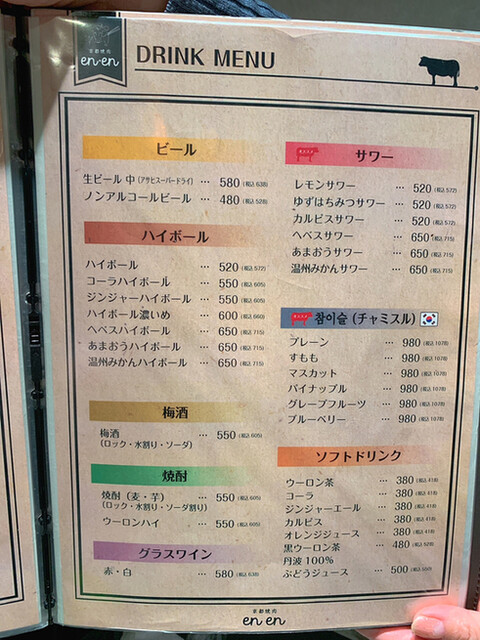 京都焼肉
en·en
DRINK MENU
ビール
生ビール 中 (アサヒスーパードライ) … 580 (税込 638)
ノンアルコールビール … 480 (税込 528)
ハイボール
ハイボール … 520 (税込 572)
コーラハイボール … 550 (税込 605)
ジンジャーハイボール … 550 (税込 605)
ハイボール濃いめ … 600 (税込 660)
ヘベスハイボール … 650 (税込 715)
あまおうハイボール … 650 (税込 715)
温州みかんハイボール … 650 (税込 715)
梅酒
梅酒 … 550 (税込 605)
(ロック・水割り・ソーダ)
焼酎
焼酎 (麦・芋) … 550 (税込 605)
(ロック・水割り・ソーダ割り)
ウーロンハイ … 550 (税込 605)
グラスワイン
赤・白 … 580 (税込 638)
サワー
レモンサワー … 520 (税込 572)
ゆずはちみつサワー … 520 (税込 572)
カルピスサワー … 520 (税込 572)
ヘベスサワー … 650 (税込 715)
あまおうサワー … 650 (税込 715)
温州みかんサワー … 650 (税込 715)
참이슬 (チャミスル)
プレーン … 980 (税込 1078)
すもも … 980 (税込 1078)
マスカット … 980 (税込 1078)
パイナップル … 980 (税込 1078)
グレープフルーツ … 980 (税込 1078)
ブルーベリー … 980 (税込 1078)
ソフトドリンク
ウーロン茶 … 380 (税込 418)
コーラ … 380 (税込 418)
ジンジャーエール … 380 (税込 418)
カルピス … 380 (税込 418)
オレンジジュース … 380 (税込 418)
黒ウーロン茶 … 480 (税込 528)
丹波 100%
ぶどうジュース … 500 (税込 550)
京都焼肉
en en